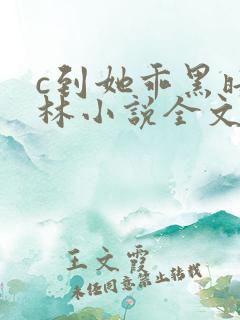 c到她乖黑时
林小说全文
王文霞
未经同意禁止转载